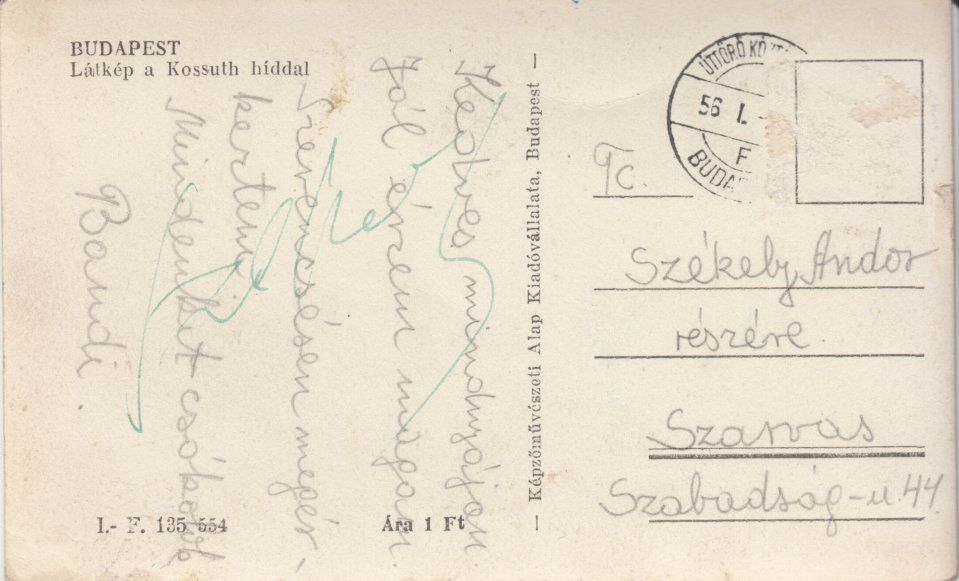 BUDAPEST
Látkép a Kossuth híddal
Kedves mindnyájan
Jól érzem magam
Szerencsésen megér-
keztem
Mindenkit csókol
Bandi.
I.- F. 135 554
Ára 1 Ft
Képzőművészeti Alap Kiadóvállalata, Budapest
ÚTTÖRŐ
56 I. -
F
BUDA
Tc.
Székely Andor
részére
Szarvas
Szabadság-u. 44